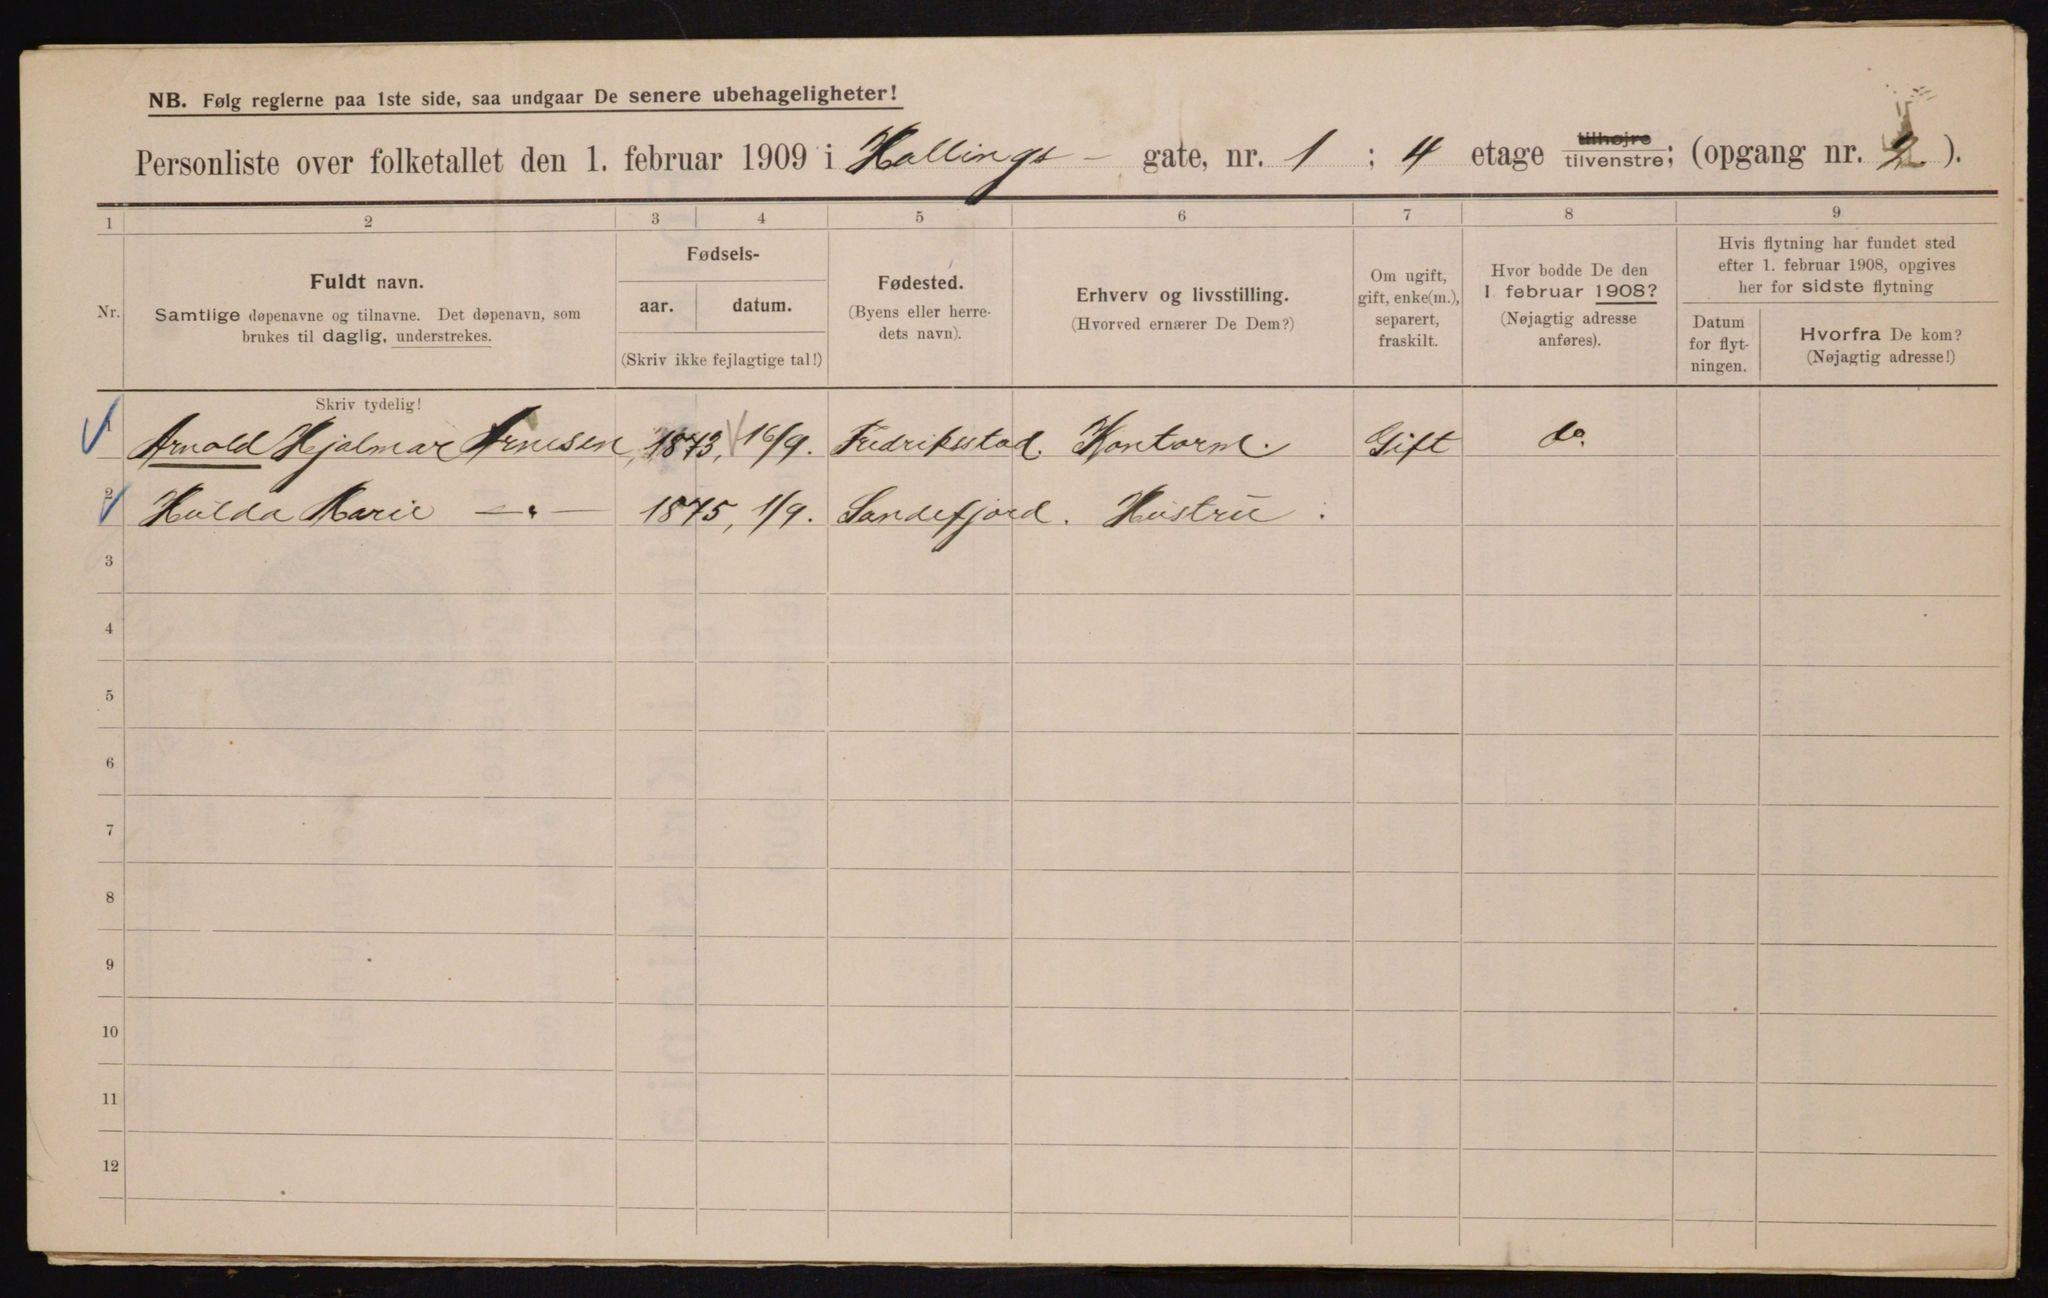 NB. Følg reglerne paa 1ste side, saa undgaar De senere ubehageligheter!
Personliste over folketallet den 1. februar 1909 i Hollings- gate, nr. 1 ; 4 etage tilhøjre tilvenstre; (opgang nr. 2).
1 2 3 4 5 6 7 8 9
Nr.
Fuldt navn.
Samtlige døpenavne og tilnavne. Det døpenavn, som
brukes til daglig, understrekes.
Fødsels-
aar. datum.
(Skriv ikke fejlagtige tal!)
Fødested.
(Byens eller herre-
dets navn).
Erhverv og livsstilling.
(Hvorved ernærer De Dem?)
Om ugift,
gift, enke(m.),
separert,
fraskilt.
Hvor bodde De den
1 februar 1908?
(Nøjagtig adresse
anføres).
Hvis flytning har fundet sted
efter 1. februar 1908, opgives
her for sidste flytning
Datum
for flyt-
ningen.
Hvorfra De kom?
(Nøjagtig adresse!)
Skriv tydelig!
1 Arnold Hjalmar Arnesen, 1873, 16/9. Fredriksstad. Kontorm. Gift do.
2 Hulda Marie —"— 1875, 1/9. Sandefjord. Hustru.
3
4
5
6
7
8
9
10
11
12